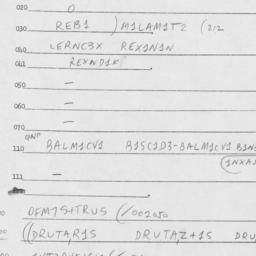 020 O
030 REB1 ) M1LAM1T2 (212
040 LERNC3X REX1N1N
041 REXND1K
050 —
060 —
070
QNP
110 BALM1CV1 B1SC1D3-BALM1CV1 B1N
(1NXA
111 —
DEM7S+TRUS (/002050
((DRUTAR1S DRUTAZ+1S DRU